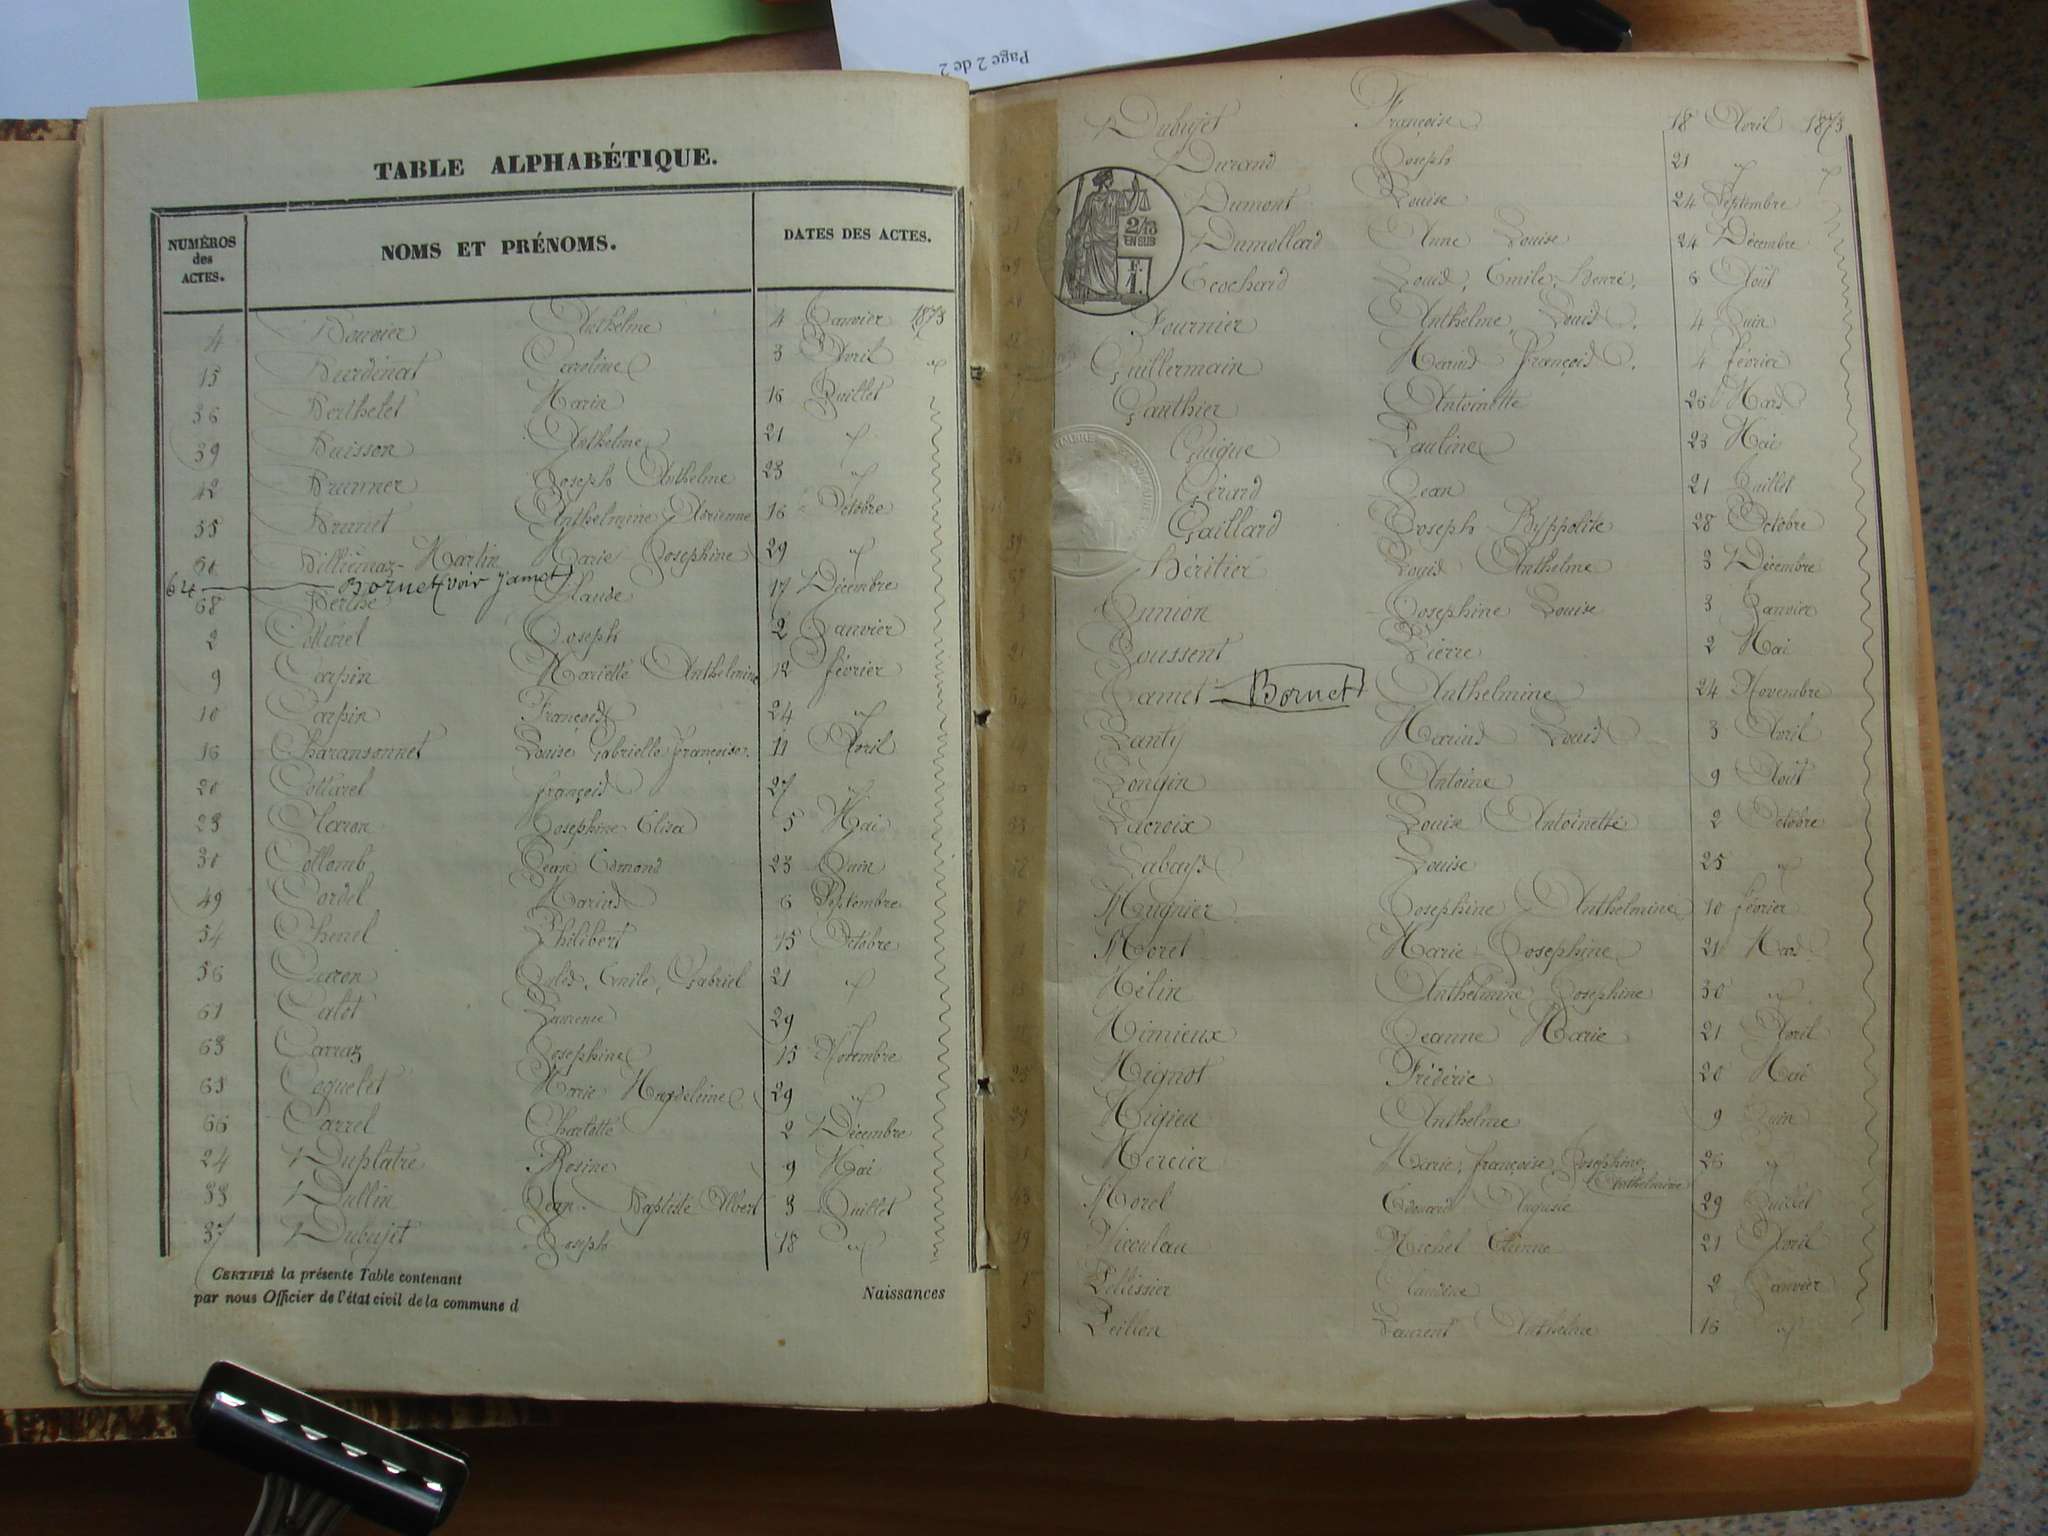 Page 2 de 2
TABLE ALPHABÉTIQUE.
NUMÉROS des ACTES. NOMS ET PRÉNOMS. DATES DES ACTES.
4 Bouvier Anthelme 4 Janvier 1873
15 Burdinat Caroline 3 Avril "
36 Berthelet Marin 16 Juillet
39 Buisson Anthelme 21 "
42 Brunner Joseph Anthelme 23 "
55 Brunet Anthelmine Adrienne 16 Octobre
60 Billiémaz-Martin Marie Josephine 29 "
64 Bornet (voir Jamet)
68 Berthe Claude 17 Décembre
2 Cotturel Joseph 2 Janvier
9 Carpin Mariette Anthelmine 12 février
10 Carpin François 24 "
16 Charansonnet Louise Gabrielle Françoise 11 Avril
20 Cotturel françois 27 "
23 Claron Josephine Elisa 5 Mai
30 Collomb Jean Edmond 23 Juin
49 Cordel Marius 6 Septembre
54 Chenel Philibert 15 Octobre
56 Jules, Emile, Gabriel 21 "
61 Catot 29 "
63 Carraz Josephine 15 Novembre
65 Coquelet Marie Magdeleine 29 "
66 Carrel Charlotte 2 Décembre
24 Duplâtre Rosine 9 Mai
33 Dullin Jean-Baptiste Albert 3 Juillet
37 Dubujet Joseph 18 "
CERTIFIÉ la présente Table contenant Naissances
par nous Officier de l'état civil de la commune d
Dubujet Françoise 18 Avril 1873
Durand Joseph 21 " "
Dumont Louise 24 Septembre
2/10 EN SUS
F. 1.
Dumollard Anne Louise 24 Décembre
Ecochard Louis, Emile, Henri, 6 Août
Fournier Anthelme, Louis. 4 Juin
Guillermain Marius François. 4 février
Gauthier Antoinette 26 Mars
Guigue Pauline 23 Mai
Gérard Jean 21 Juillet
Gaillard Joseph Hyppolite 28 Octobre
Héritier Louis Anthelme 3 Décembre
Junion Josephine Louise 3 Janvier
Joussent Pierre 2 Mai
Jamet - Bornet Anthelmine 24 Novembre
Lanty Marius Louis 3 Avril
Longin Antoine 9 Août
Lacroix Louise Antoinette 2 Octobre
Labays Louise 25 "
Mugnier Josephine Anthelmine 10 février
Moret Marie-Josephine 21 Mars
Mélin Anthelmine Josephine 30 "
Mimieux Jeanne Marie 21 Avril
Mignot Frédéric 20 Mai
Migieu Anthelme 9 Juin
Mercier Marie, françoise, Josephine, Anthelmine 26 "
Morel Edouard Auguste 29 Juillet
Nicoulau Michel Etienne 21 Avril
Pellissier Claudine 2 Janvier
5 Peillon Laurent Anthelme 16 "